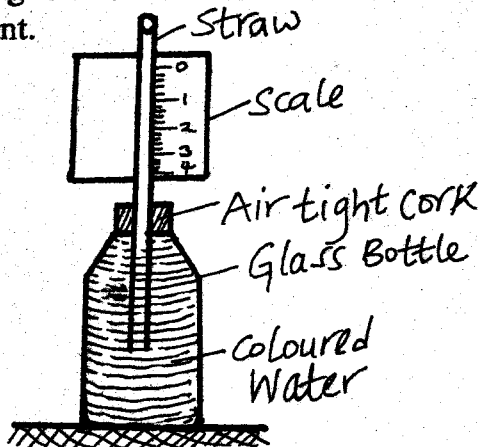 nt.
Straw
0
1
2
3
4
Scale
Air tight Cork
Glass Bottle
Coloured
Water